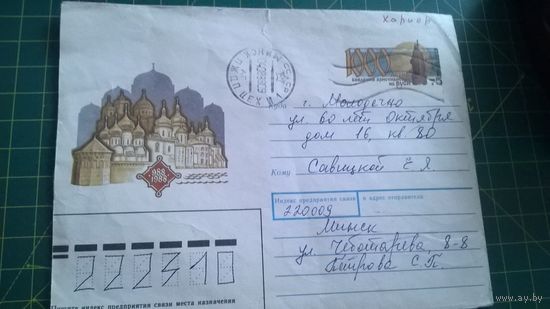 Харкор
1000
введения христианства
на Руси
Куда
г. Молодечно
ул. 60 лет Октября
дом 16, кв 80
Кому Савицкой Е Я.
Индекс предприятия связи и адрес отправителя
220009
Минск
ул. Чеботарева 8-8
Петрова С.П.
988
1988
222310
Пишите индекс предприятия связи места назначения
ay.by